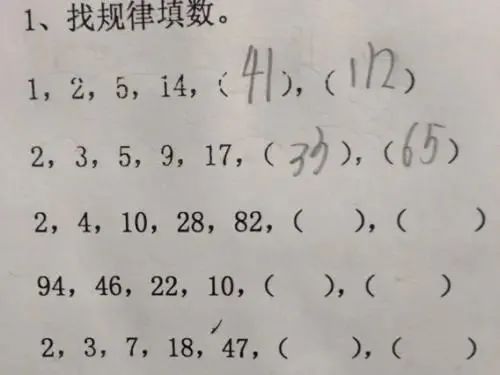 1、找规律填数。
1，2，5，14，（41），（112）
2，3，5，9，17，（33），（65）
2，4，10，28，82，（ ），（ ）
94，46，22，10，（ ），（ ）
2，3，7，18，47，（ ），（ ）